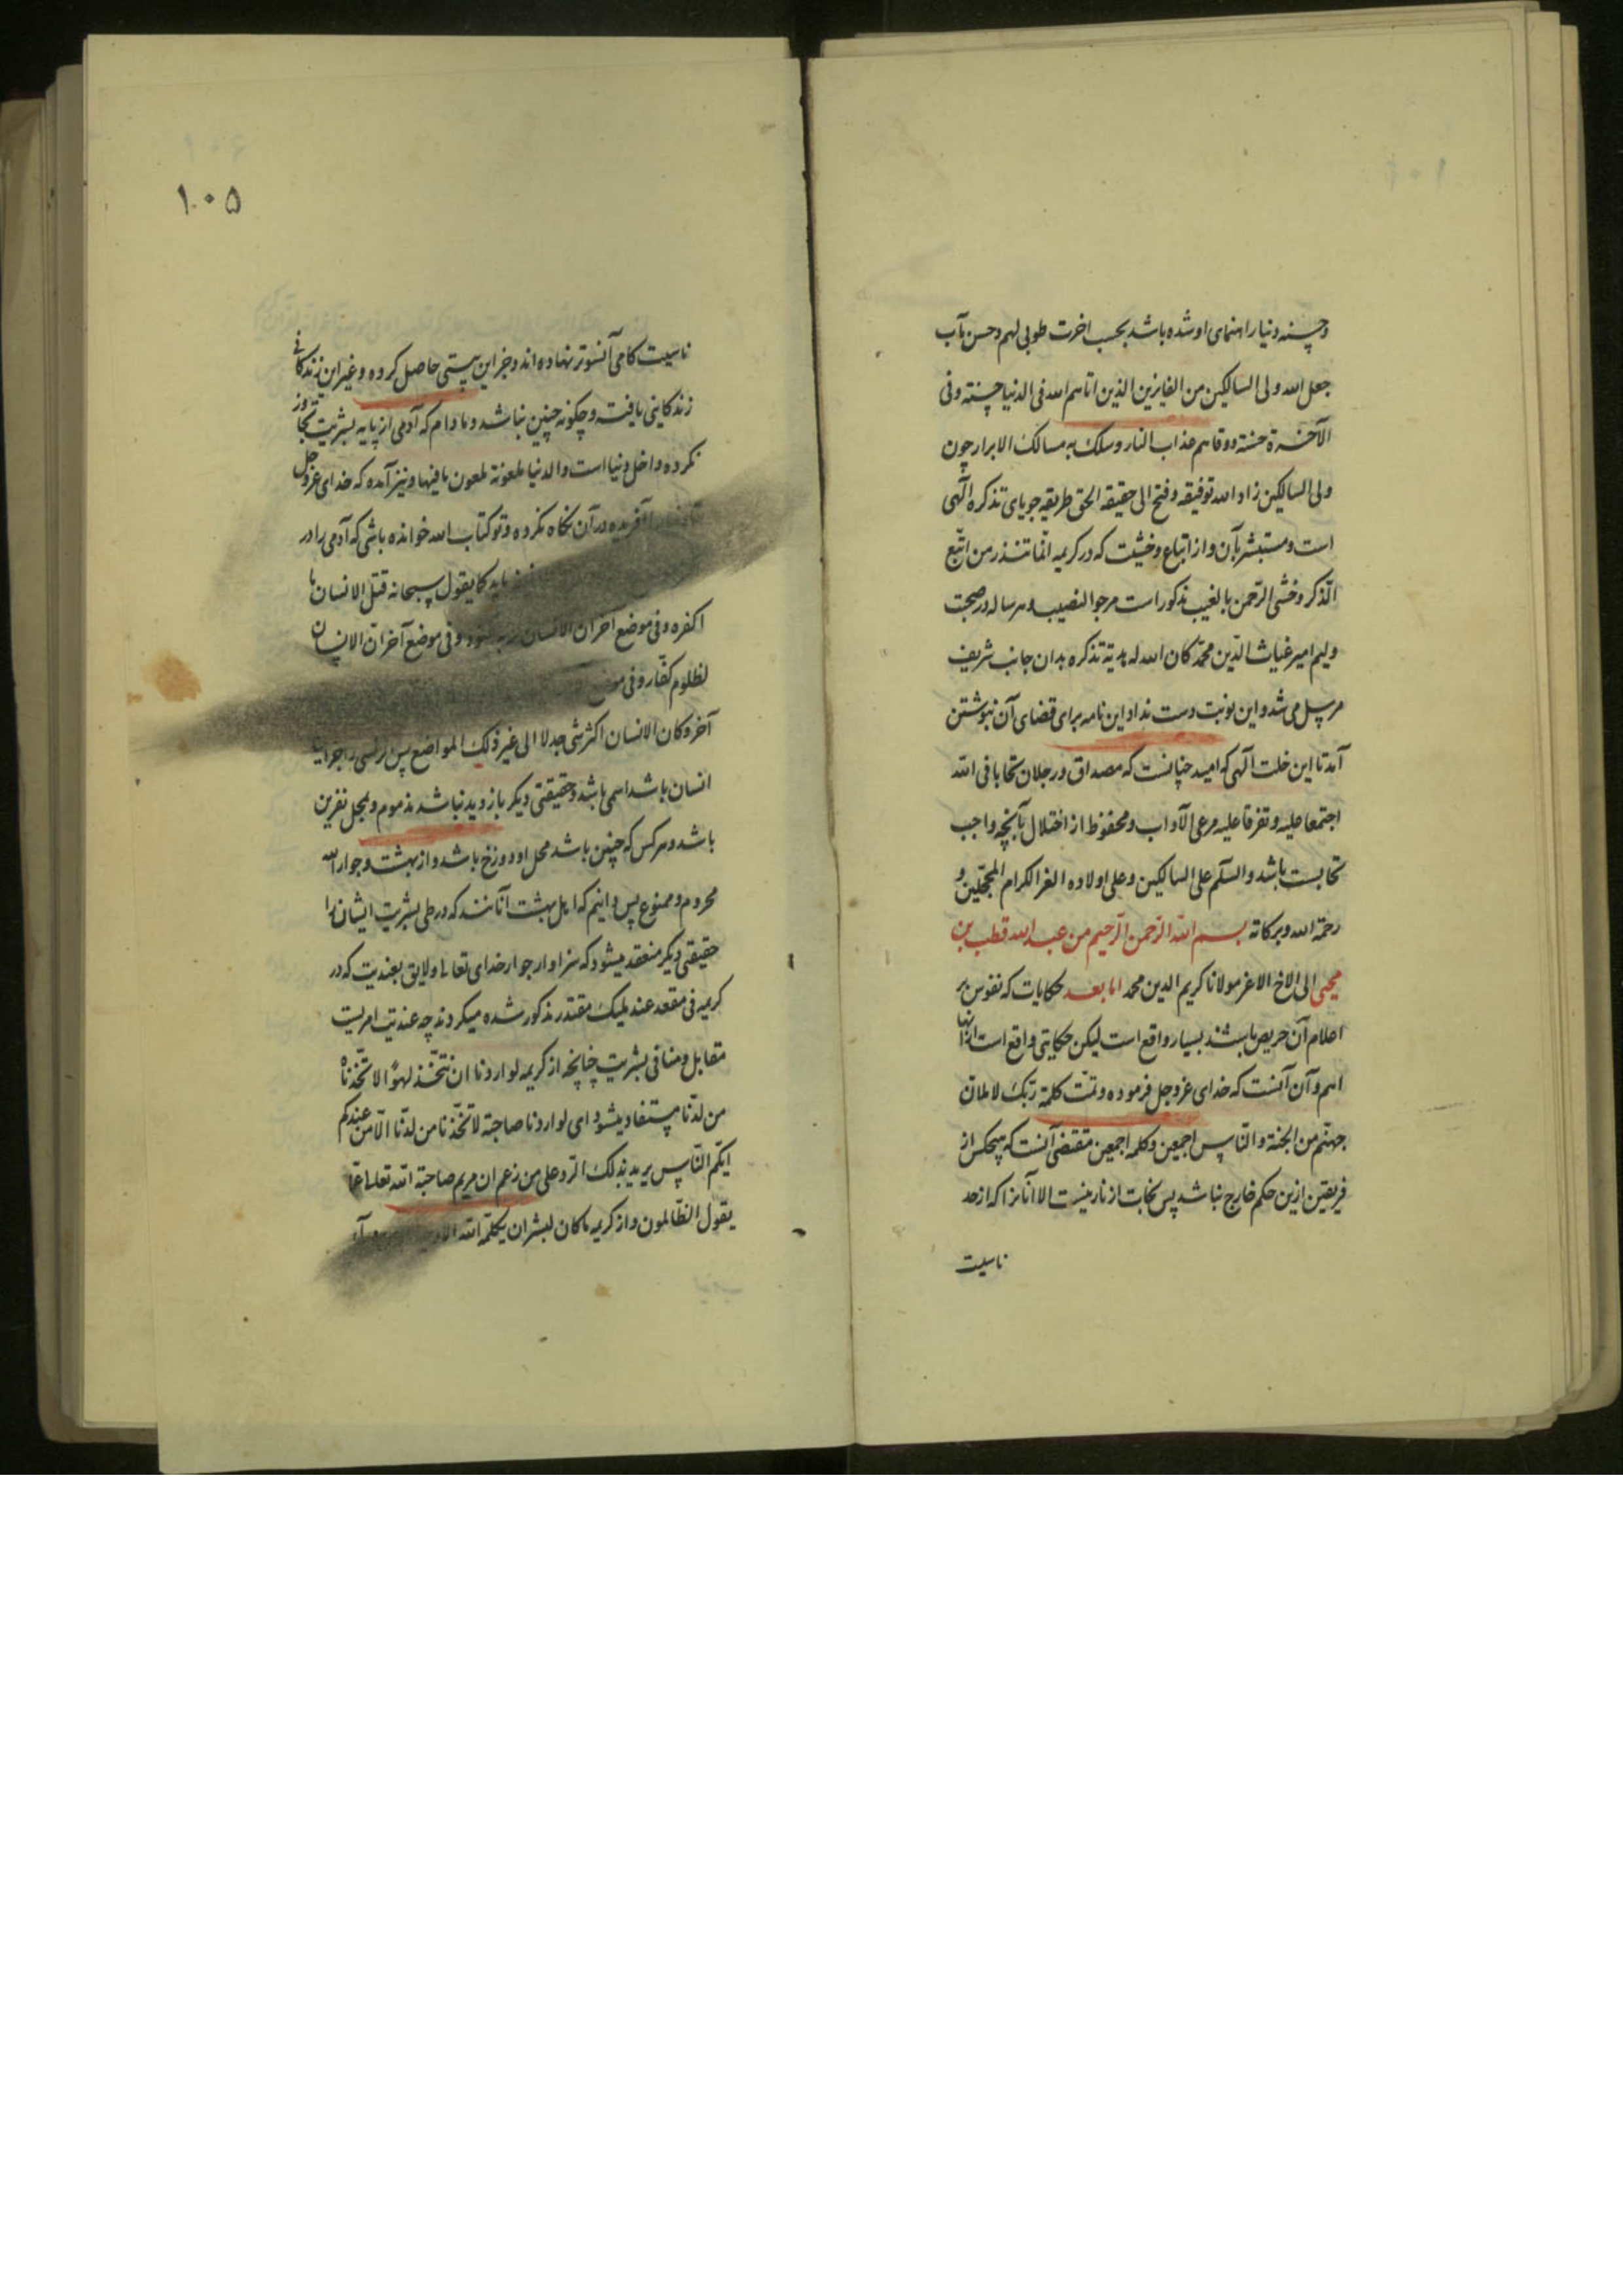 وحسنه دنیا راهنمای او شده باشد بحسب اخرت طوبی لهم وحسن مآب
جعل الله ولی السالکین من الفایزین الذین اتاهم الله فی الدنیا حسنة وفی
الآخرة حسنة ووقاهم عذاب النار وسلک به مسالک الابرار چون
ولی السالکین زاد الله توفیقه وفتح الی حقیقة الحق طریقه جویای تذکره الهی
است ومستبشر بآن واز اتباع وخشیت که در کریمه انما تنذر من اتبع
الذکر وخشی الرحمن بالغیب مذکور است مرجو النصیب هر ساله در صحبت
ولیم امیر غیاث الدین محمد کان الله له هدیة تذکره بدان جانب شریف
مرسل می شد واین نوبت دست نداد این نامه برای قضای آن نبوشتن
آمد تا این خلت آلهی که امید چنانست که مصداق ورجلان تحابا فی الله
اجتمعا علیه وتفرقا علیه مرعی الآداب ومحفوظ از اختلال بآنچه واجب
تحابست باشد والسلم علی السالکین وعلی اولاده الغر الکرام المبجلین و
رحمة الله وبرکاته بسم الله الرحمن الرحیم من عبد الله قطب بن
محیی الی الاخ الاعز مولانا کریم الدین محمد اما بعد حکایات که نفوس بر
اعلام آن حریص باشند بسیار واقع است لیکن حکایتی واقع است از آنها
اهم وآن آنست که خدای عز وجل فرموده وتمت کلمة ربک لاملان
جهنم من الجنة والناس اجمعین وکلمه اجمعین مقتضی آنست که هیچکس از
فریقین ازین حکم خارج نباشد پس نجات از نار نیست الا آنانرا که از حد
ناسیت
۱۰۵
ناسیت کامی آنسوتر نهاده اند وجز این هستی حاصل کرده وغیر این زندکانی
زندکانی یافته وچکونه چنین نباشد ومادام که آدمی از پایه بشریت تجاوز
نکرده داخل دنیا است والدنیا ملعونة ملعون مافیها ونیز آمده که خدای عز وجل
تا دنیا را آفریده در آن نکاه نکرده وتو کتاب الله خوانده باشی که آدمی را در
کما یقول سبحانه قتل الانسان ما
اکفره وفی موضع آخر ان الانسان لربه لکنود وفی موضع آخر ان الانسان
لظلوم کفار وفی موضع
آخر وکان الانسان اکثر شیء جدلا الی غیر ذلک المواضع پس
انسان باشد اسمی باشد وحقیقتی دیکر بازدید نباشد مذموم ومحل نفرین
باشد وهر کس که چنین باشد محل او دوزخ باشد واز بهشت وجوار الله
محروم وممنوع پس دانیم که اهل بهشت آنانند که در طی بشریت ایشان را
حقیقتی دیکر منعقد میشود که سزاوار جوار خدای تعالی ولایق بعندیت که در
کریمه فی مقعد عند ملیک مقتدر مذکور شده میکردند چه عندیت امریست
مقابل ومنافی بشریت چنانچه از کریمه لو اردنا ان نتخذ لهوا لاتخذناه
من لدنا مستفاد میشود ای لو اردنا صاحبة لاتخذنا من لدنا الا من عندکم
ایکم الناس یرید بذلک الرد علی من زعم ان مریم صاحبة الله تعالی عما
یقول الظالمون واز کریمه ما کان لبشر ان یکلمه الله الا